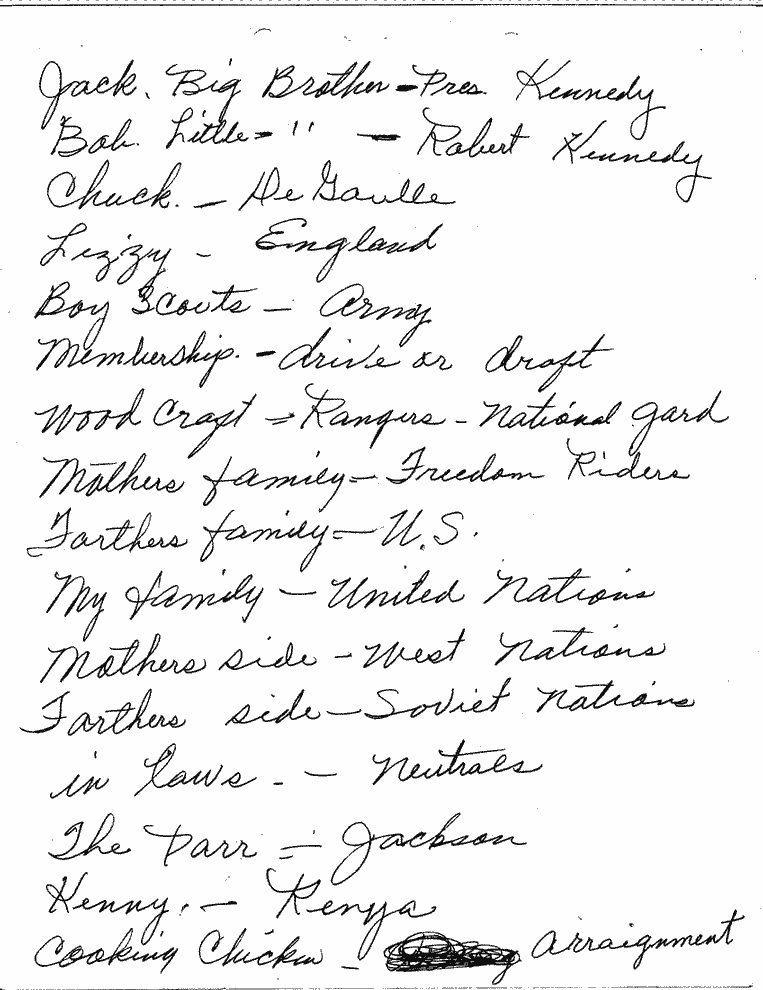 Jack. Big Brother - Pres. Kennedy
Bob. Little - " - Robert Kennedy
Chuck. - De Gaulle
Lizzy - England
Boy Scouts - Army
Membership. - drive or draft
Wood Craft - Rangers - National gard
Mothers family - Freedom Riders
Farthers family - U.S.
My family - United Nations
Mothers side - West Nations
Farthers side - Soviet Nations
in laws. - Neutrals
The Parr - Jackson
Kenny. - Kenya
Cooking Chicken - Arraignment